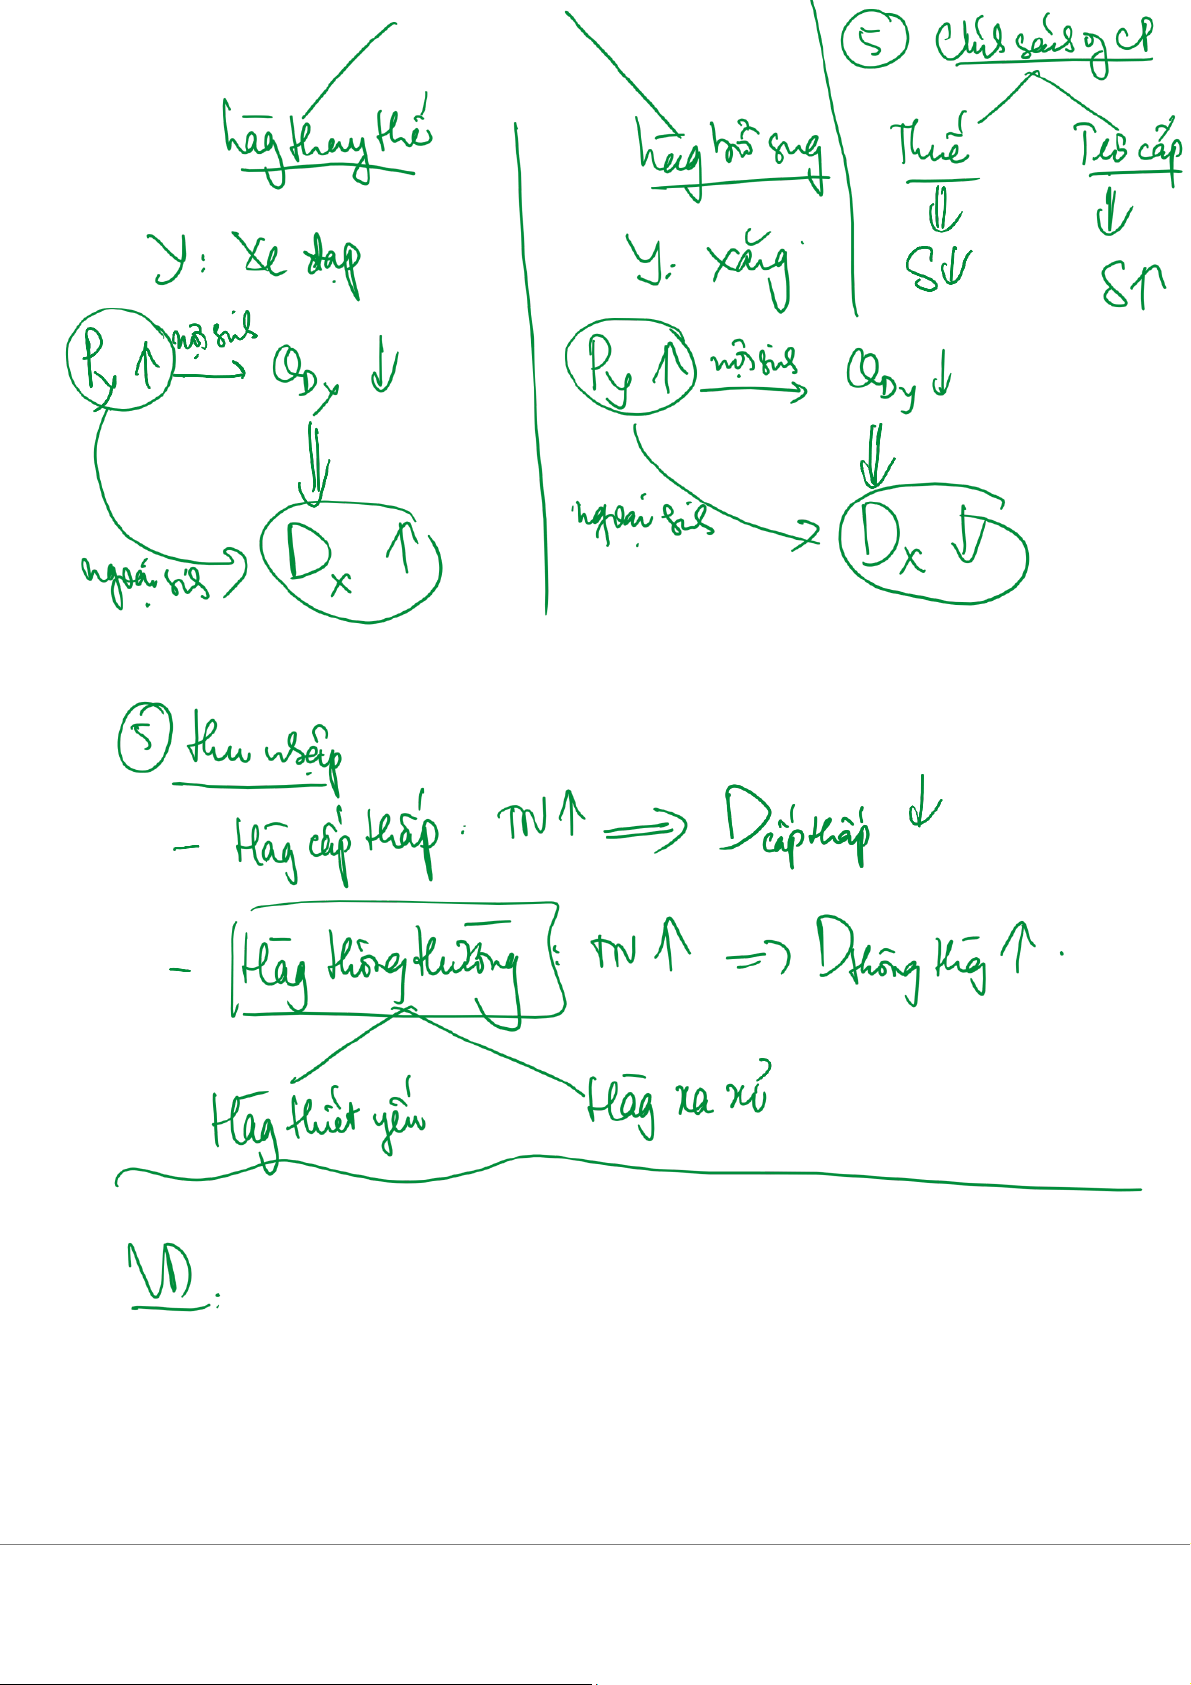 hāg thay thế
Y: Xe đạp
Py ↑ nội sih → QDx ↓
⇓
ngoại sih → Dx ↑
hāg bổ sug
Y: xăng
Py ↑ nội sih → QDy ↓
⇓
ngoại sih → Dx ↓
⑤ Chíh sách of CP
Thuế Trợ cấp
⇓ ⇓
S↓ S↑
⑤ thu nhập
- Hāg cấp thấp: TN ↑ ⟹ D cấp thấp ↓
- Hāg thông thường: TN ↑ ⟹ D thông thg ↑.
Hāg thiết yếu Hāg xa xỉ
VD: